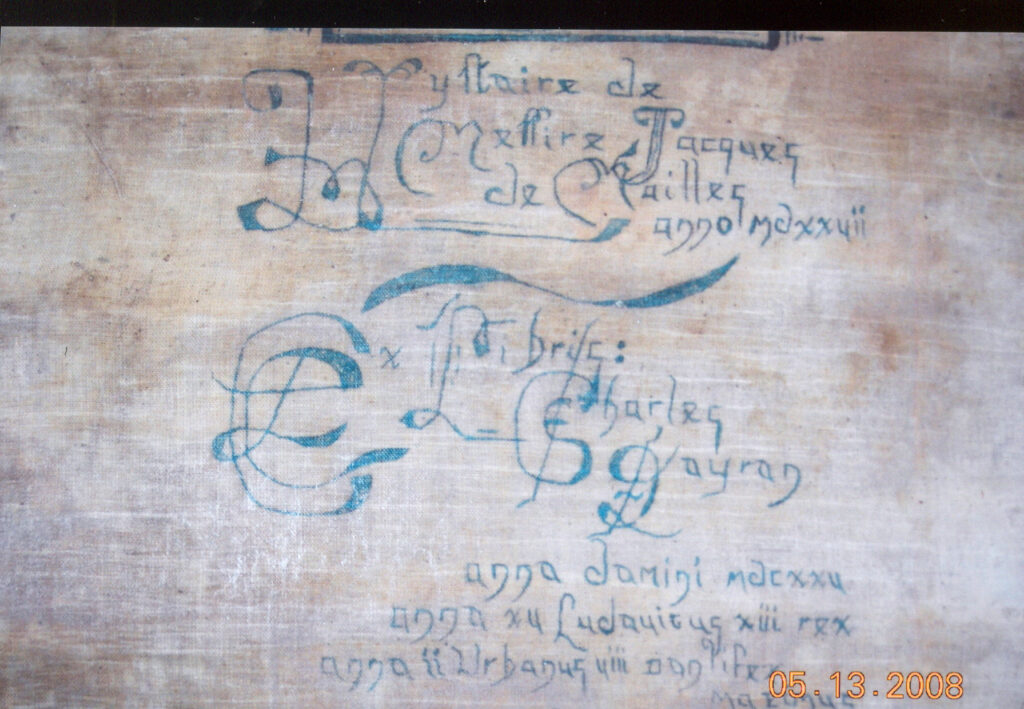 Mystaire de
Messire Jacques
de Cailles
anno mdxxvii
Ex Libris:
Charles
Gayran
anna damini mdcxxv
anna xv Ludavicus xiii rex
anna ii Urbanus viii
05.13.2008